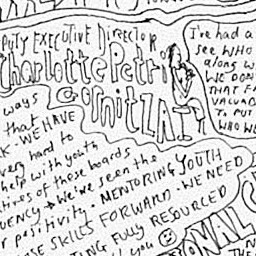 PUTY EXECUTIVE DIRECTOR
Charlotte Petri
Gornitzka
I've had a
see WHO
along w
WE DON'
THAT FA
VALUAB
TO PUT
WHO WE
ways
that
K. WE HAVE
very hard to
help with youth
tives of these boards
UENCY → We've seen the
r positivity. MENTORING YOUTH
SE SKILLS FORWARD. WE NEED
TING FULLY RESOURCED
you
ONAL